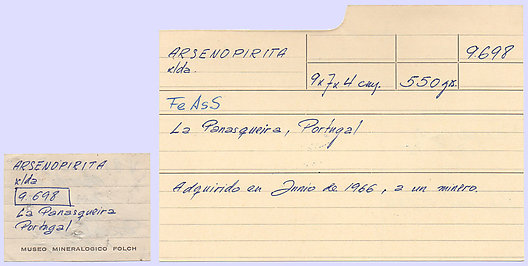 ARSENOPIRITA
xlda.
9.698
9x7x4 cm.
550 grs.
FeAsS
La Panasqueira, Portugal
Adquirido en Junio de 1966, a un minero.
ARSENOPIRITA
xlda
9.698
La Panasqueira
Portugal
MUSEO MINERALOGICO FOLCH